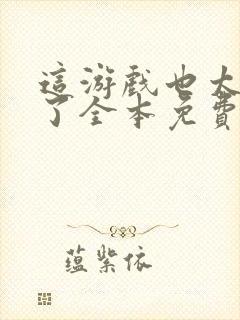 這游戲也太
了全本免費
蕴紫依